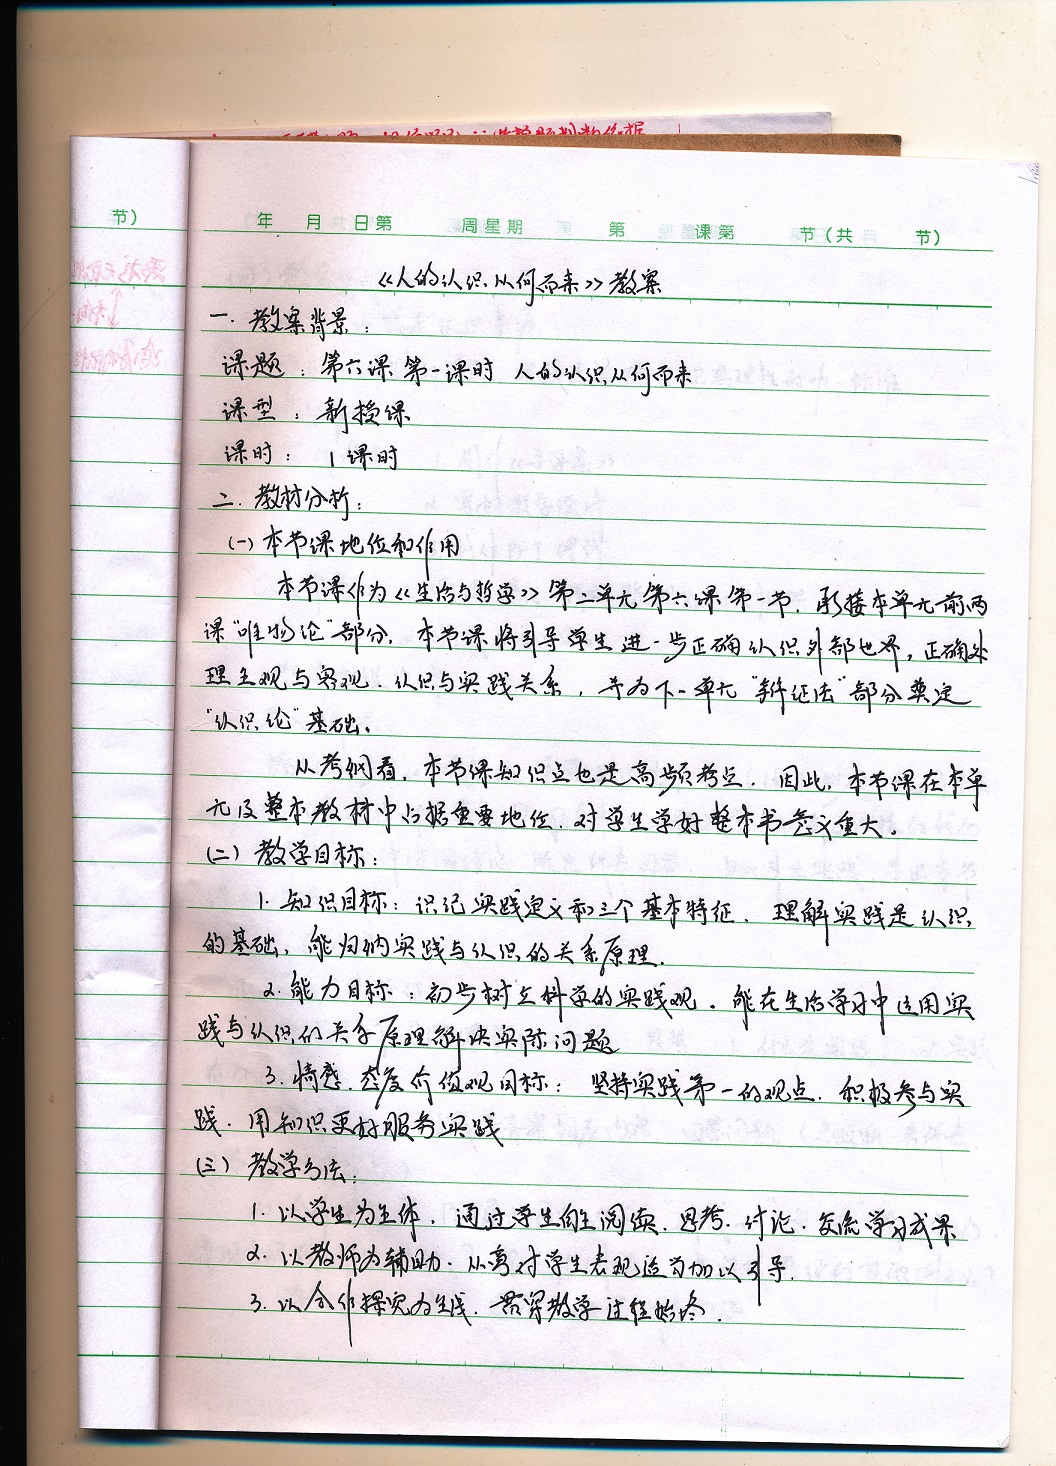 节）
年 月 日第 周星期 第 课第 节（共 节）
《人的认识从何而来》教案
一. 教案背景：
课题：第六课 第一课时 人的认识从何而来
课型：新授课
课时：1课时
二. 教材分析：
（一）本节课地位和作用
本节课作为《生活与哲学》第二单元第六课第一节，承接本单元前两
课“唯物论”部分，本节课将引导学生进一步正确认识外部世界，正确处
理主观与客观、认识与实践关系，并为下一单元“辩证法”部分奠定
“认识论”基础。
从考纲看，本节课知识点也是高频考点．因此，本节课在本单
元及整本教材中占据重要地位，对学生学好整本书意义重大。
（二）教学目标：
1. 知识目标：识记实践定义和三个基本特征，理解实践是认识
的基础，能归纳实践与认识的关系原理．
2. 能力目标：初步树立科学的实践观，能在生活学习中运用实
践与认识的关系原理解决实际问题
3. 情感、态度价值观目标：坚持实践第一的观点，积极参与实
践，用知识更好服务实践
（三）教学方法：
1. 以学生为主体，通过学生自主阅读、思考、讨论、交流学习成果
2. 以教师为辅助，从旁对学生表现适当加以引导．
3. 以合作探究为主线，贯穿教学过程始终．